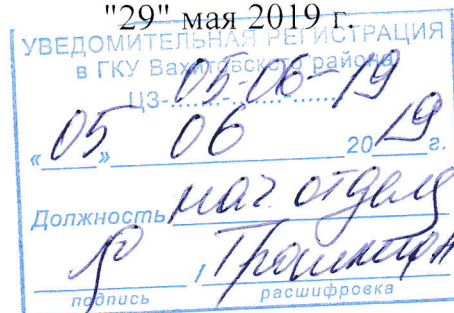 "29" мая 2019 г.
УВЕДОМИТЕЛЬНАЯ РЕГИСТРАЦИЯ
в ГКУ Вахитовского района
ЦЗ-05-06-19
«05» 06 2019 г.
Должность нач отдела
/
подпись расшифровка